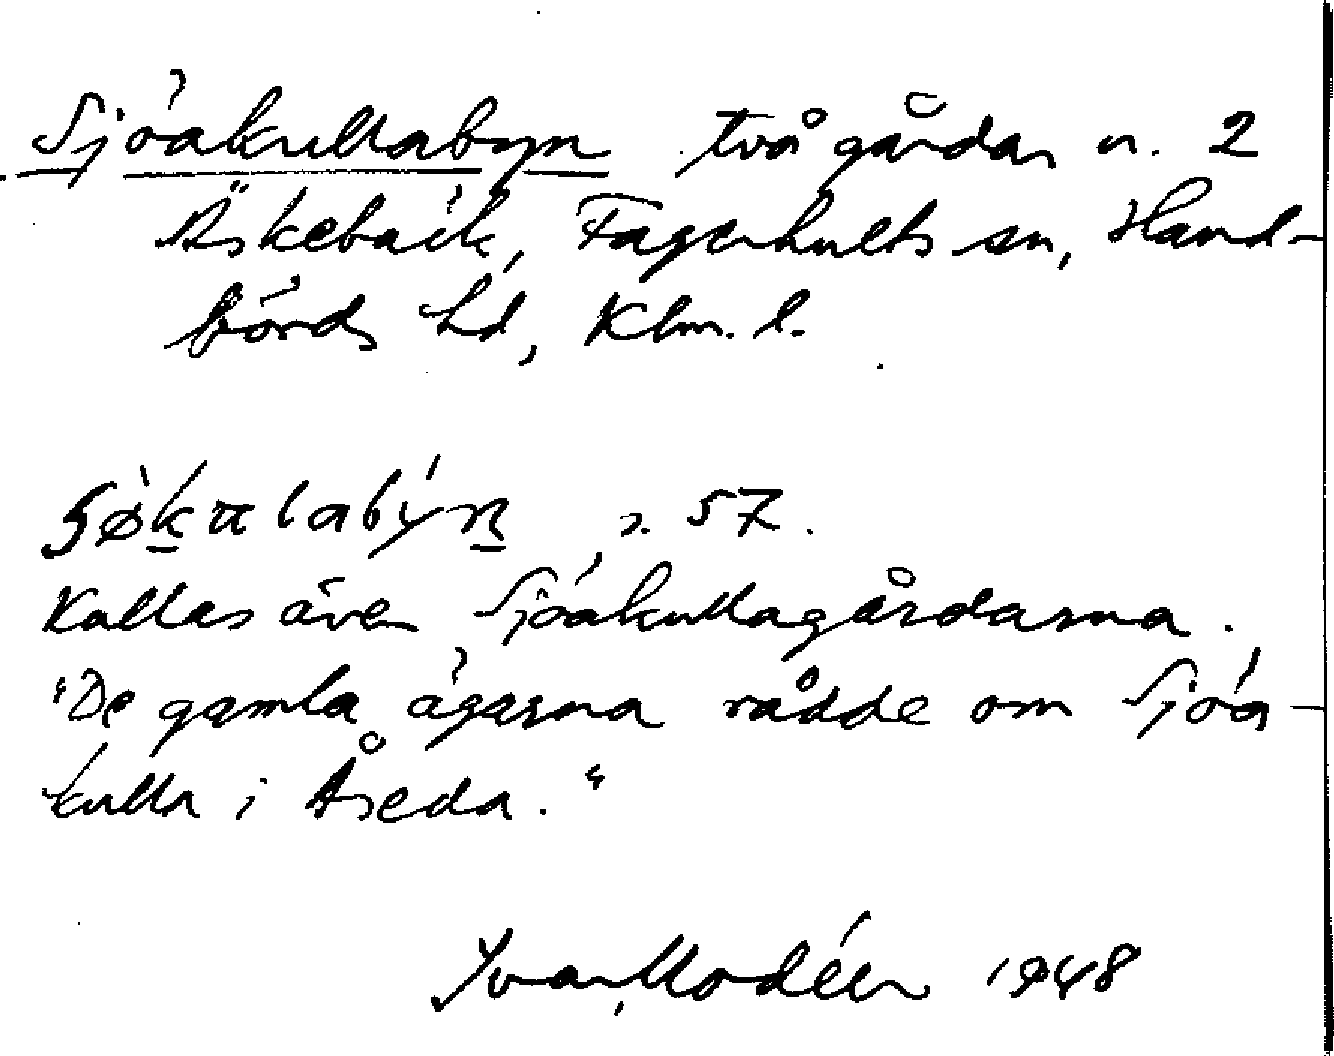 Sjöakullabyn två gårdar n. 2
Äskebäck, Fagerhults sn, Hand-
börds hd, Klm. l.
s. 57.
Kallas även Sjöakullagårdarna.
"De gamla ägarna rådde om Sjöa-
kulla i Åseda."
Ivar Modéer 1948